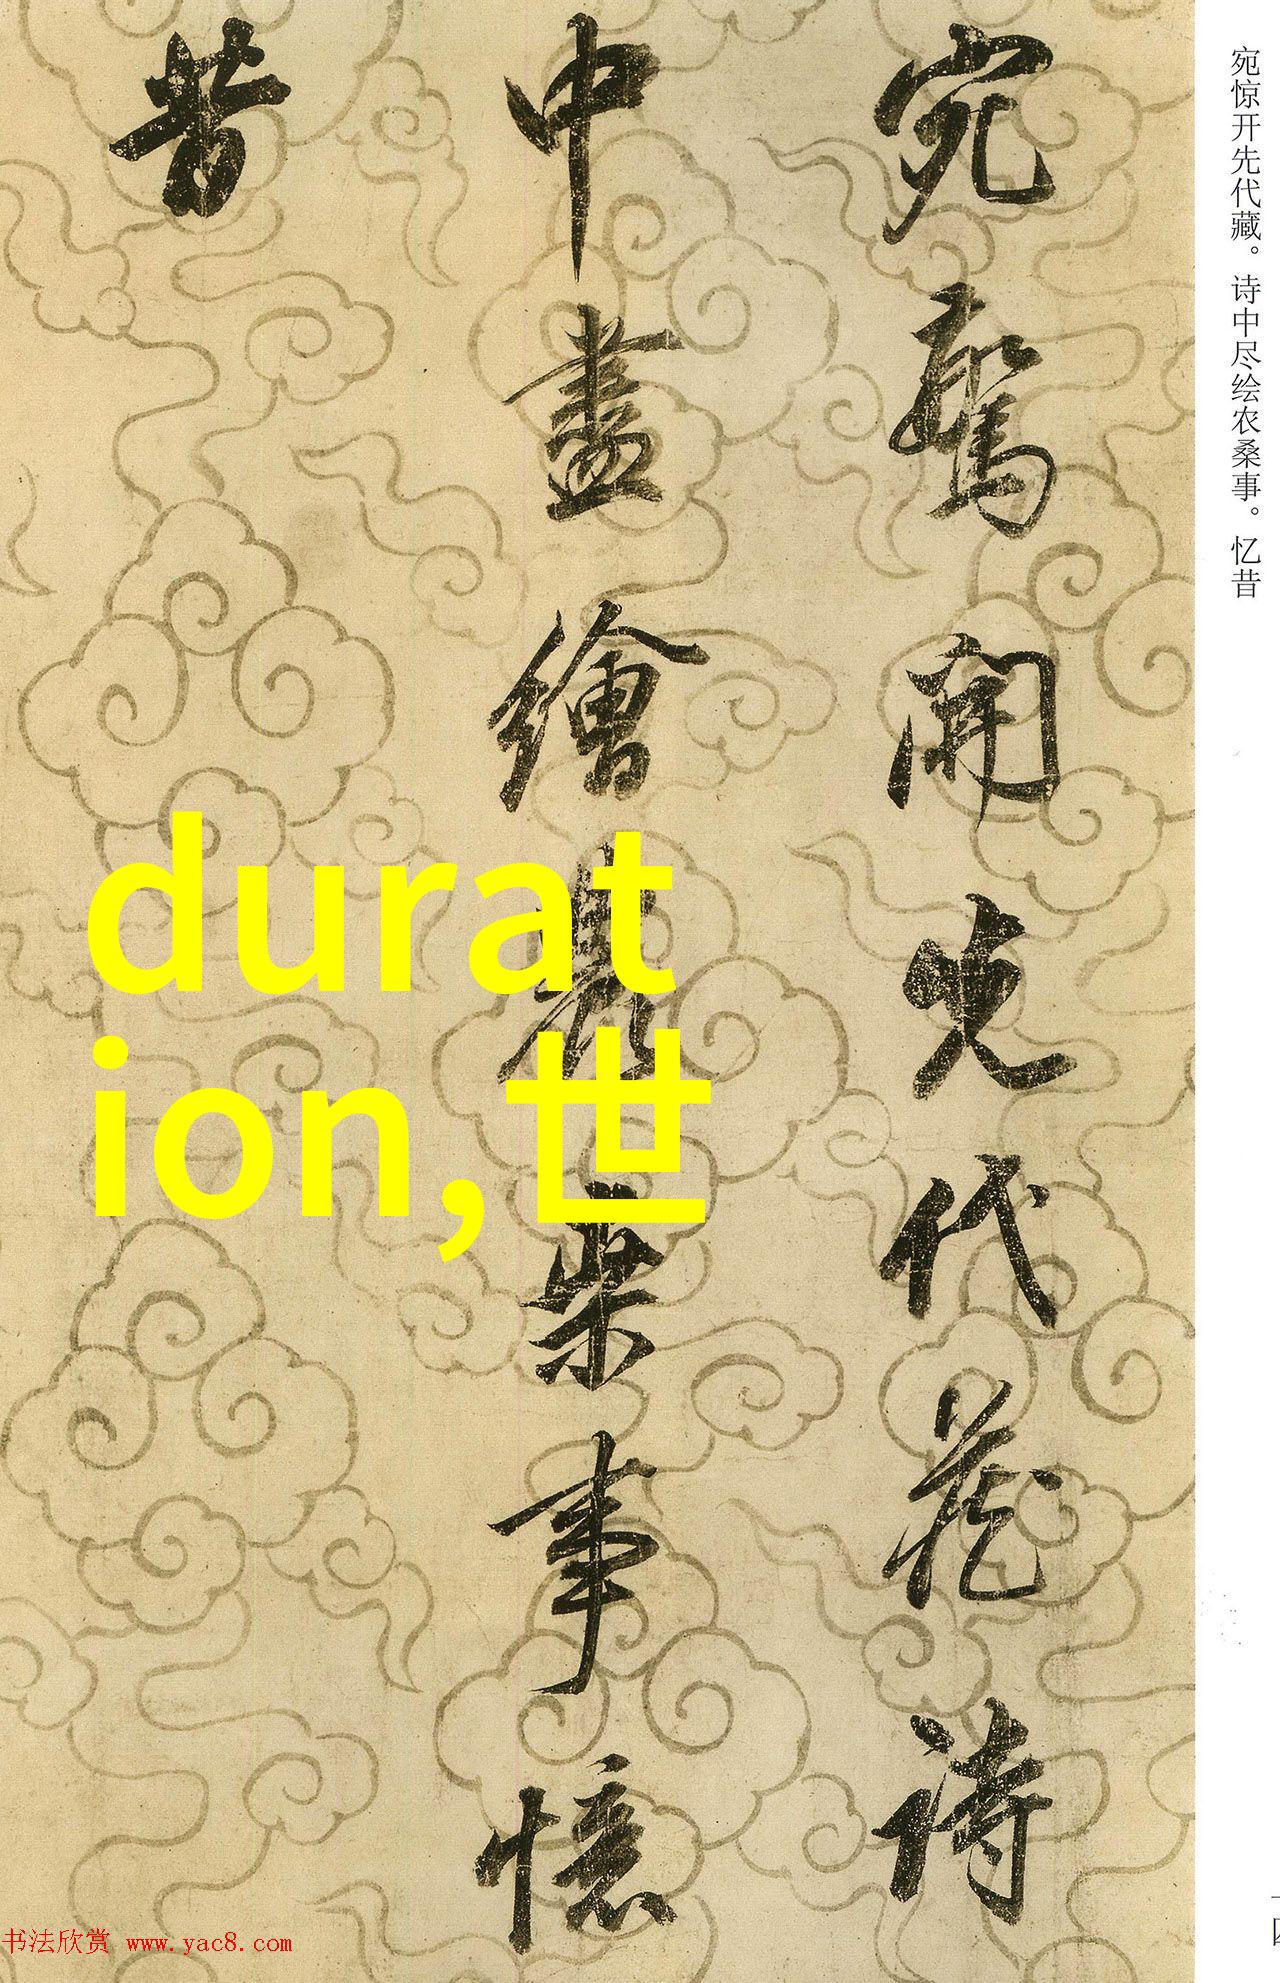 宛驚開先代蔵詩
中盡繪農桒事憶
昔
宛惊开先代藏。诗中尽绘农桑事。忆昔
durat
ion,世
书法欣赏 www.yac8.com